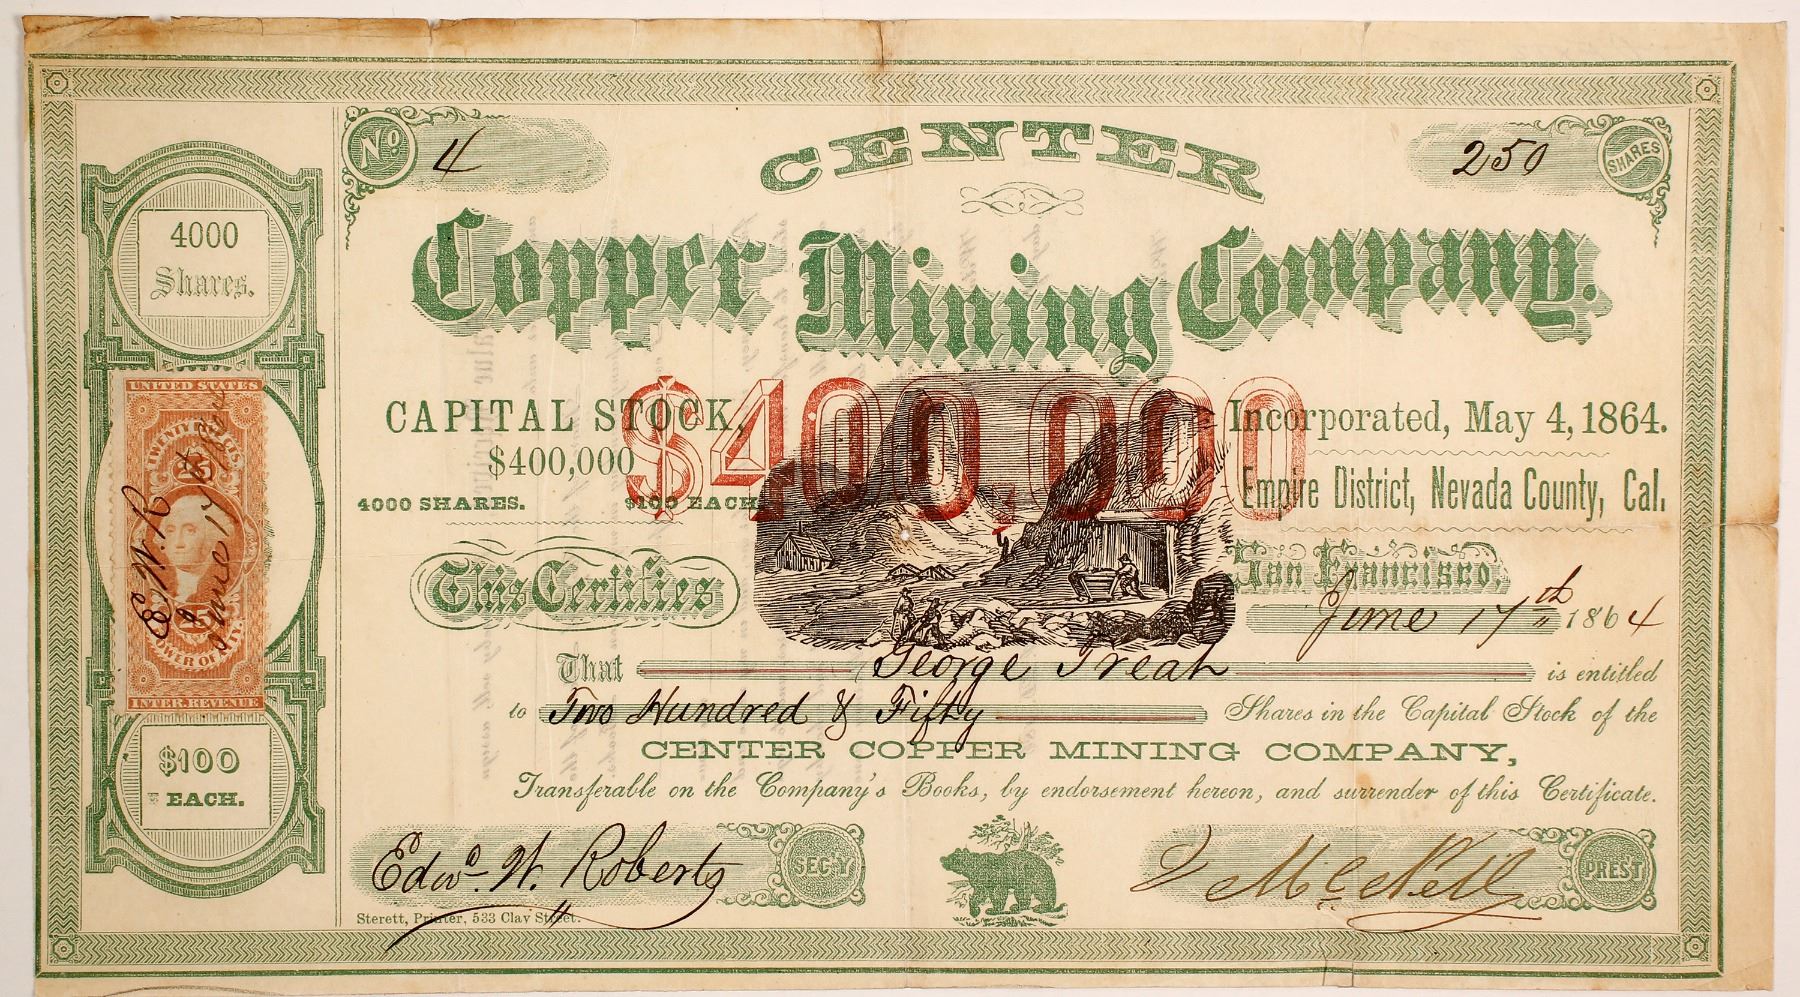 No 4
CENTER
250 SHARES
Copper Mining Company.
4000
Shares.
$400,000
CAPITAL STOCK,
$400,000
4000 SHARES. $100 EACH
Incorporated, May 4, 1864.
Empire District, Nevada County, Cal.
UNITED STATES
TWENTY FIVE CTS
25
POWER OF ATTY.
INTER. REVENUE
E. W. R
June 17th 1864
This Certifies
San Francisco,
June 17th 1864
That George Treat is entitled
to Two Hundred & Fifty Shares in the Capital Stock of the
CENTER COPPER MINING COMPANY,
Transferable on the Company's Books, by endorsement hereon, and surrender of this Certificate.
$100
EACH.
Edwd. W. Roberts SEC'Y
McNeil PREST
Sterett, Printer, 533 Clay Street.